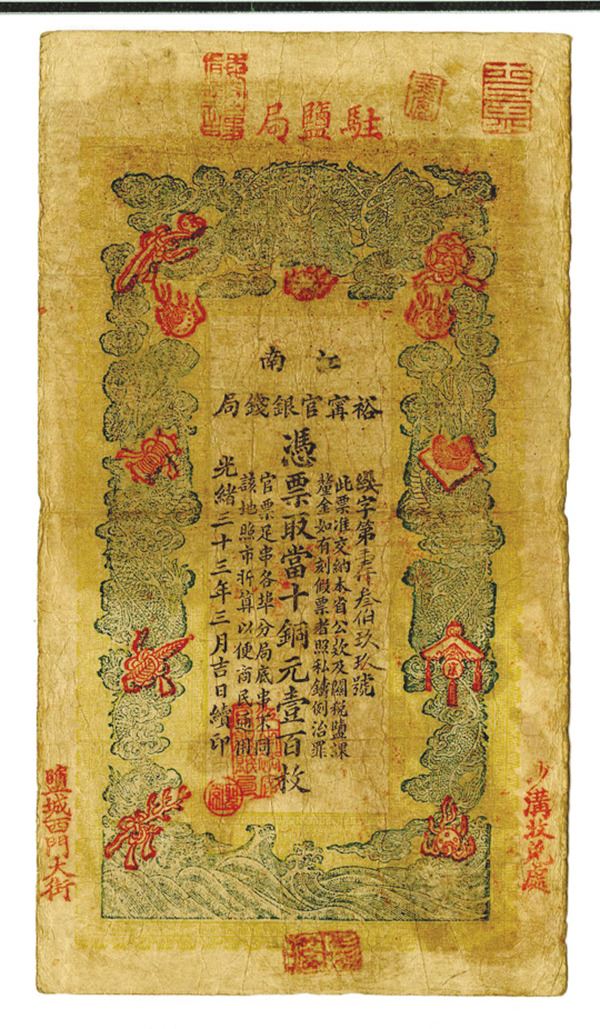 駐鹽局
江南
裕甯官銀錢局
字第叁伯玖玖號
此票准交納本省公欵及關稅鹽課
釐金如有刻假票者照私鑄例治罪
憑票取當十銅元壹百枚
官票足串各埠分局底串不同
該地照市折算以便商民通用
光緒三十三年三月吉日續印
鹽城西門大街
兌處